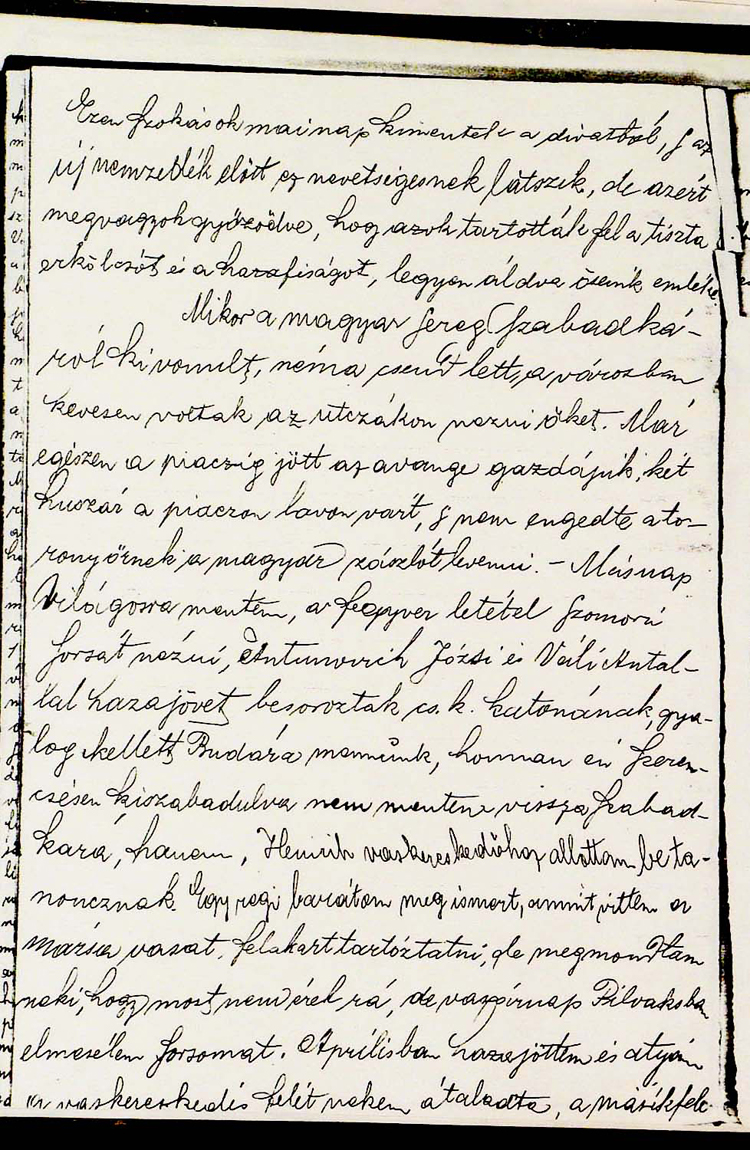 Ezen szokások mai nap kimentek a divatból, s az
új nemzedék előtt ez nevetségesnek látszik, de azért
megvagyok győződve, hogy azok tartották fel a tiszta
erkölcsöt és a hazafiságot, legyen áldva őseink emléke.
Mikor a magyar sereg Szabadká-
ról kivonult, néma csend lett, a városban
kevesen voltak az utczákon nézni őket. Már
egészen a piaczig jött az avange gazdájuk, két
huszár a piaczon lovon várt, s nem engedte a to-
ronyőrnek a magyar zászlót levenni. – Másnap
Világosra mentem, a fegyver letétel szomorú
sorsát nézni, Antunovich Józsi és Váli Antal-
lal hazajövet besoroztak cs. k. katonának, gya-
log kellett Budára mennünk, honnan én szeren-
csésen kiszabadulva nem mentem vissza Szabad-
kára, hanem, Heinrih vaskereskedőhoz allottam be ta-
noncznak. Egy regi barátom meg ismert, amint vittem a
vasat, felakart tartóztatni, de megmondtam
neki, hogy most nem érek rá, de vasárnap Pilvaksba
elmesélem sorsomat. Áprilisban hazajöttem és atyám
a vaskereskedés felét nekem átaladta, a másik fele